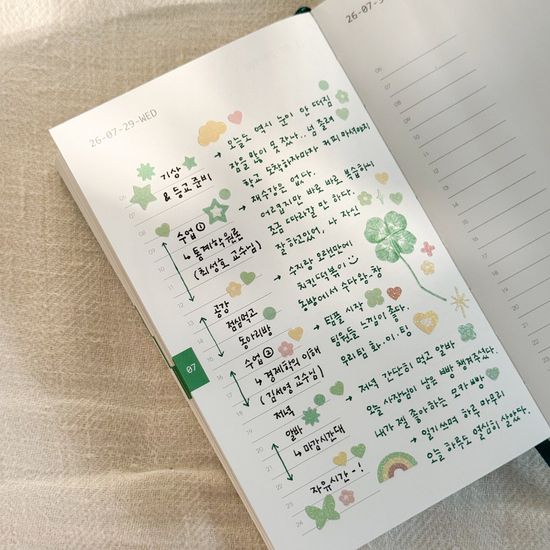 26-07-29-WED
26-07-3
기상
& 등교준비
→ 오늘도 역시 눈이 안 떠짐
잠을 많이 못 잤나.. 넘 졸려
학교 도착하자마자 커피 마셔야지
수업 ①
↳ 통계학원론
(최성호 교수님)
→ 재수강은 없다.
어렵지만 바로 바로 복습하니
조금 따라갈 만 하다.
잘하고있어, 나 자신
공강
점심먹고
동아리방
→ 수지랑 오랜만에
치킨떡볶이
동방에서 수다왕창
수업 ②
↳ 경제학의 이해
(김서영 교수님)
→ 팀플 시작
팀원들 느낌이 좋다.
우리팀 화.이.팅
저녁
알바
↳ 마감시간대
→ 저녁 간단히 먹고 알바
오늘 사장님이 남은 빵 챙겨주셨다.
내가 젤 좋아하는 모카빵
자유시간~!
→ 일기쓰며 하루 마무리
오늘 하루도 열심히 살았다.
07